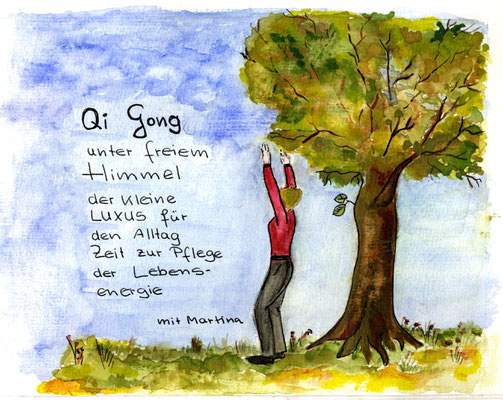 Qi Gong
unter freiem
Himmel
der kleine
LUXUS für
den Alltag
Zeit zur Pflege
der Lebens-
energie
mit Martina